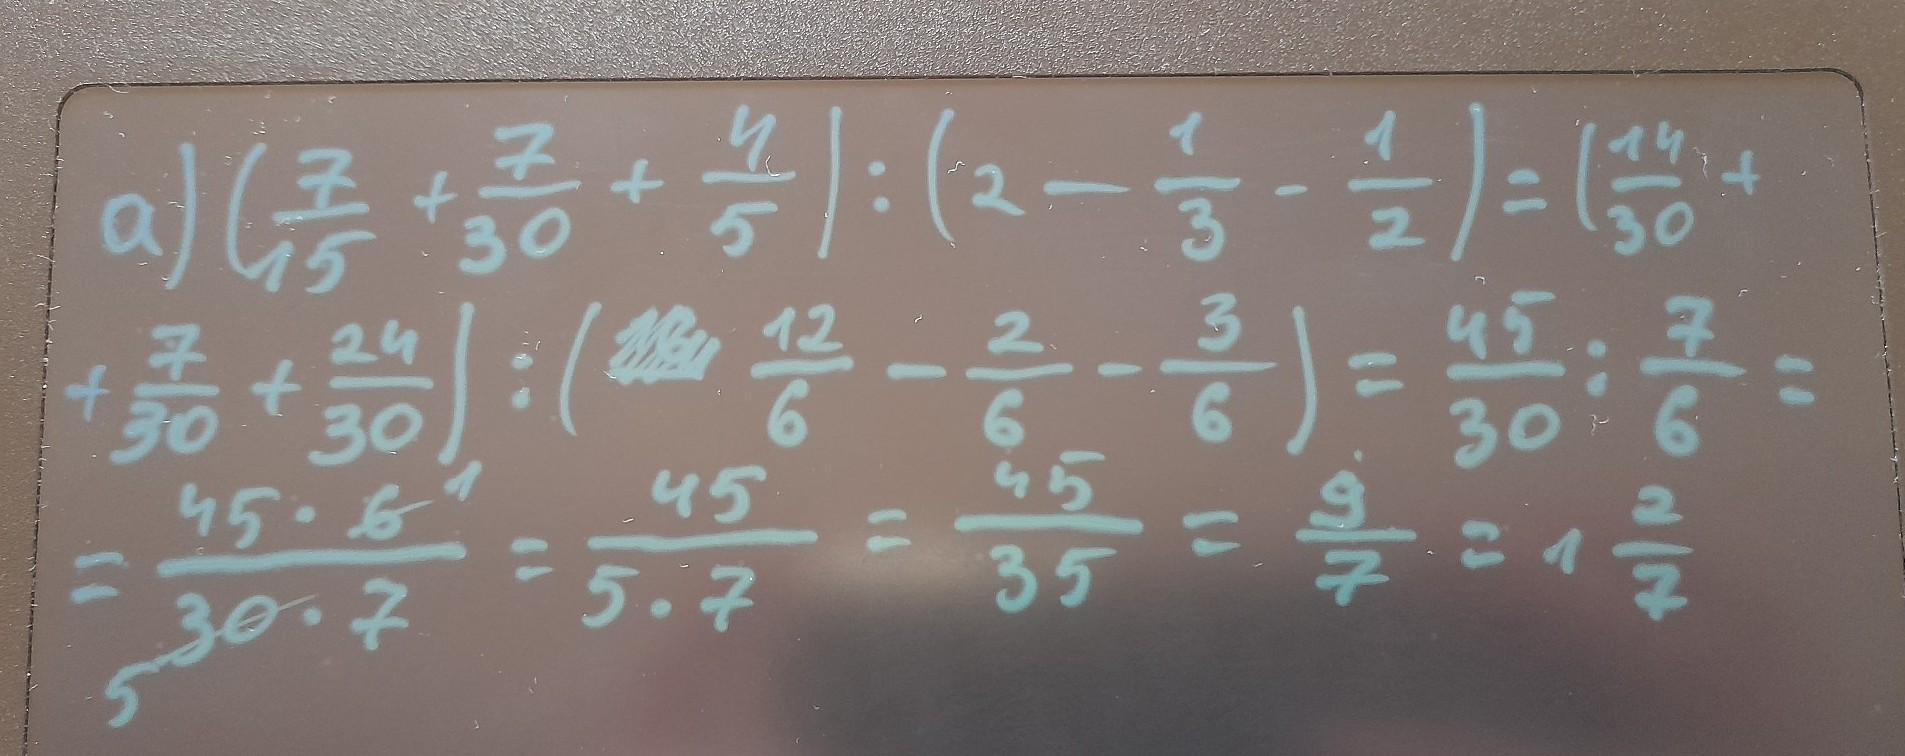 a) (7/15 + 7/30 + 4/5) : (2 - 1/3 - 1/2) = (14/30 +
+ 7/30 + 24/30) : ( 12/6 - 2/6 - 3/6 ) = 45/30 : 7/6 =
= 45 · 6 1 / 30 · 7 5 = 45 / 5 · 7 = 45/35 = 9/7 = 1 2/7